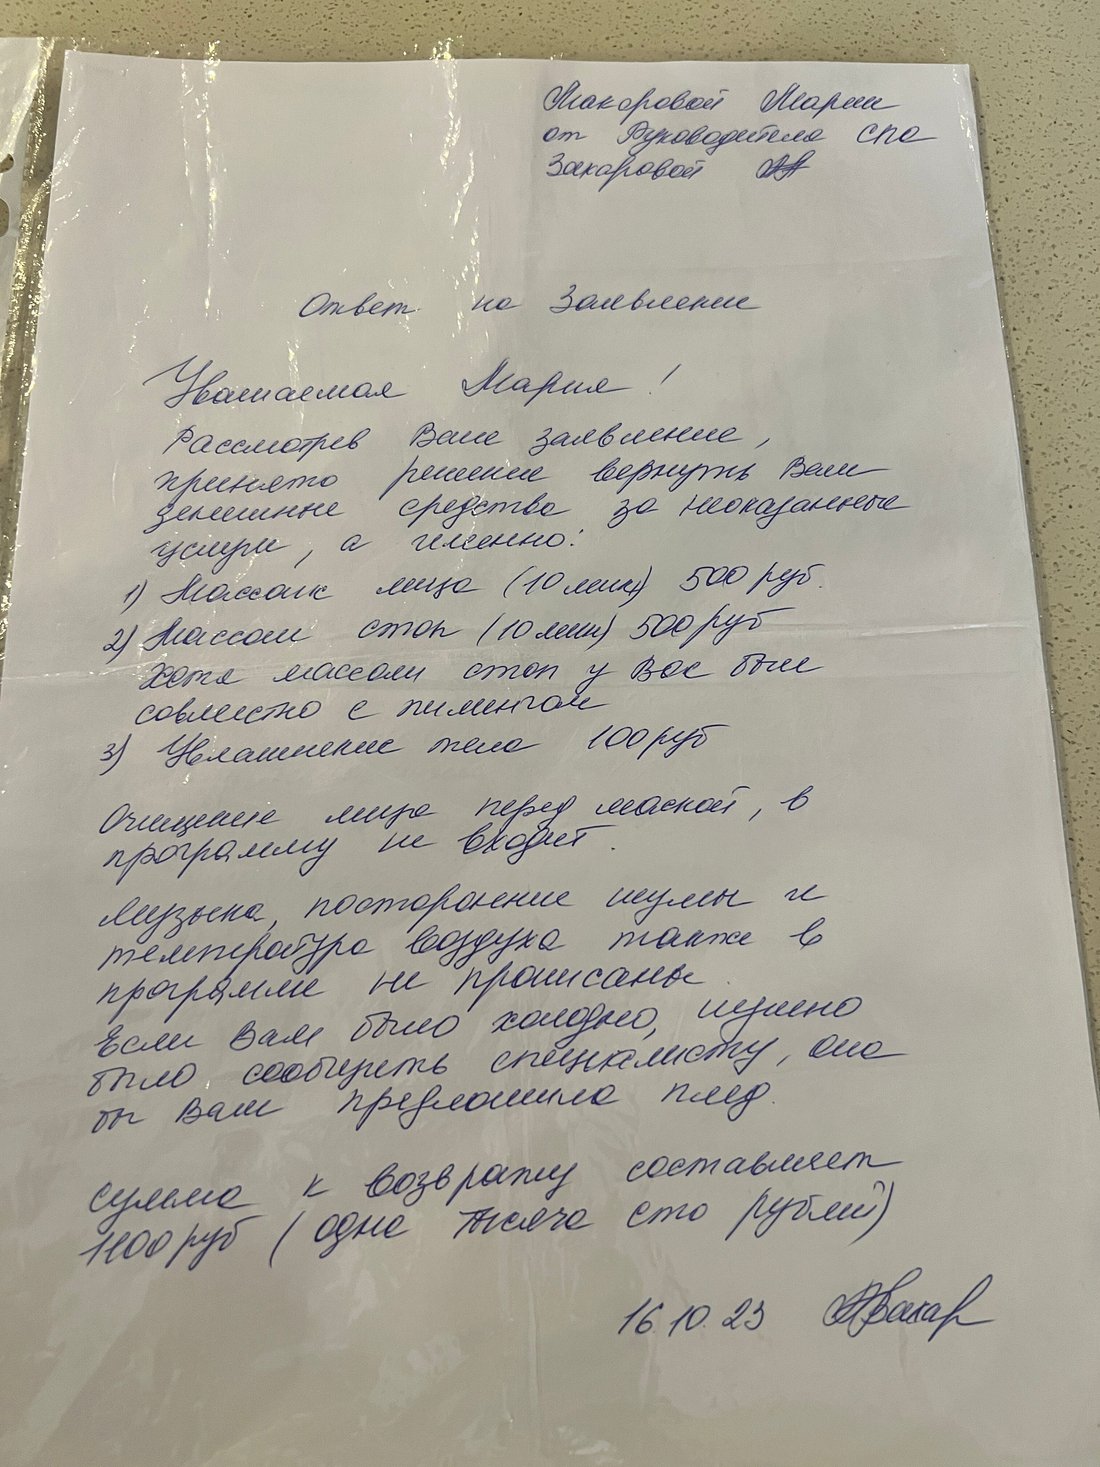 Макаровой Марии
от Руководителя спа
Захаровой АА
Ответ на Заявление
Уважаемая Мария!
Рассмотрев Ваше заявление,
принято решение вернуть Вам
денежные средства за неоказанные
услуги, а именно:
1) Массаж лица (10 мин) 500 руб.
2) Массаж стоп (10 мин) 500 руб
Хотя массаж стоп у Вас был
совместно с пилингом
3) Увлажнение тела 100 руб
Очищение лица перед маской, в
программу не входит.
Музыка, посторонние шумы и
температура воздуха также в
программе не прописаны.
Если Вам было холодно, нужно
было сообщить специалисту, она
бы Вам предложила плед.
Сумма к возврату составляет
1100 руб (одна тысяча сто рублей)
16.10.23 Захар